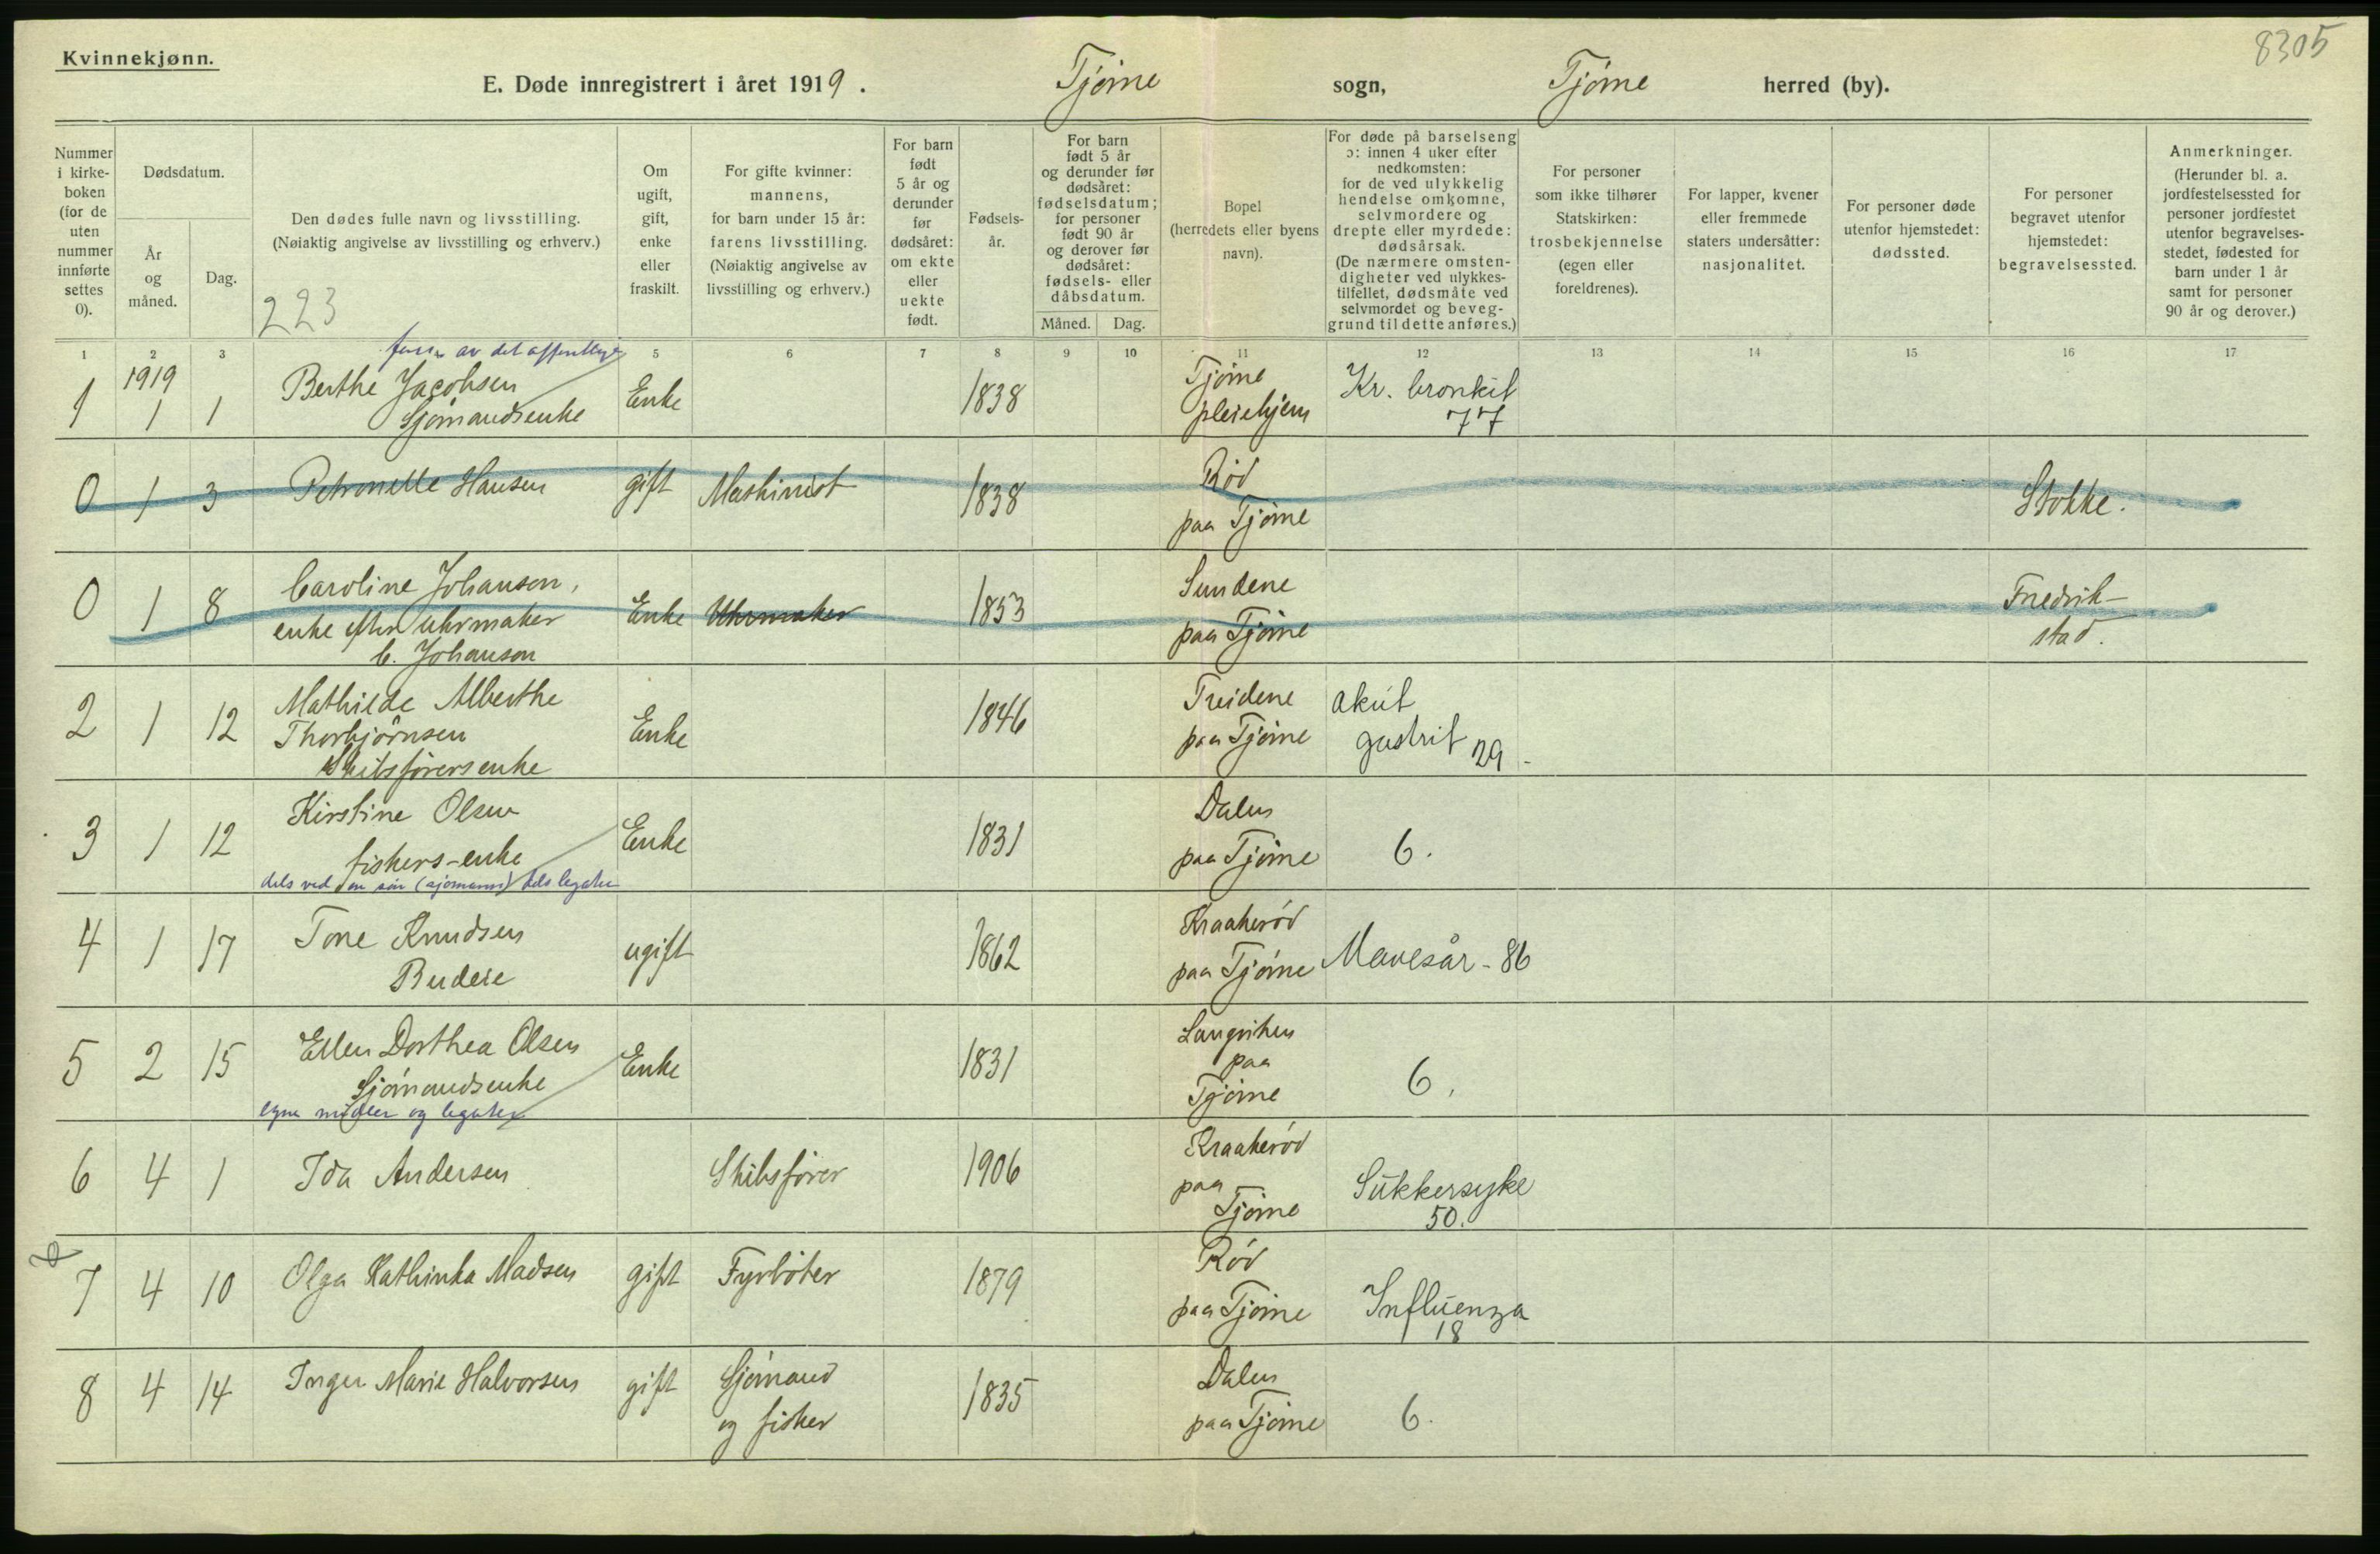 8305
Kvinnekjønn.
E. Døde innregistrert i året 1919. Tjøme sogn, Tjøme herred (by).
Nummer i kirke-boken (for de uten nummer innførte settes 0).
Dødsdatum.
År og måned.
Dag.
Den dødes fulle navn og livsstilling.
(Nøiaktig angivelse av livsstilling og erhverv.)
223
Om ugift, gift, enke eller fraskilt.
For gifte kvinner: mannens, for barn under 15 år: farens livsstilling. (Nøiaktig angivelse av livsstilling og erhverv.)
For barn født 5 år og derunder før dødsåret: om ekte eller uekte født.
Fødsels-år.
For barn født 5 år og derunder før dødsåret: fødselsdatum; for personer født 90 år og derover før dødsåret: fødsels- eller dåbsdatum.
Måned. Dag.
Bopel (herredets eller byens navn).
For døde på barselseng ɔ: innen 4 uker efter nedkomsten: for de ved ulykkelig hendelse omkomne, selvmordere og drepte eller myrdede: dødsårsak. (De nærmere omsten-digheter ved ulykkes-tilfellet, dødsmåte ved selvmordet og beveg-grund til dette anføres.)
For personer som ikke tilhører Statskirken: trosbekjennelse (egen eller foreldrenes).
For lapper, kvener eller fremmede staters undersåtter: nasjonalitet.
For personer døde utenfor hjemstedet: dødssted.
For personer begravet utenfor hjemstedet: begravelsessted.
Anmerkninger. (Herunder bl. a. jordfestelsessted for personer jordfestet utenfor begravelses-stedet, fødested for barn under 1 år samt for personer 90 år og derover.)
1 2 3 5 6 7 8 9 10 11 12 13 14 15 16 17
av det offentlige
1919
1 1 1 Berthe Jacobsen Sjømandsenke Enke 1838 Tjøme pleiehjem Kr. bronkit 77
0 1 3 Petronelle Hansen gift Maskinist 1838 Rød paa Tjøme Stokke.
0 1 8 Caroline Johanson, enke efter uhrmaker C. Johanson Enke Uhrmaker 1853 Sundene paa Tjøme Fredrik-stad.
2 1 12 Mathilde Alberthe Thorbjørnsen Skibsførersenke Enke 1846 Treidene paa Tjøme akut gastrit 29
3 1 12 Kirstine Olsen fiskers-enke Enke 1831 Dalen paa Tjøme 6.
dels ved en søn (sjømann) dels legater
4 1 17 Tone Knudsen Budeie ugift 1862 Kraakerød paa Tjøme Mavesår - 86
5 2 15 Ellen Dorthea Olsen Sjømandsenke Enke 1831 Langviken paa Tjøme 6.
egne midler og legater
6 4 1 Ida Andersen Skibsfører 1906 Kraakerød paa Tjøme Sukkersyke 50.
7 4 10 Olga Kathinka Madsen gift Fyrbøter 1879 Rød paa Tjøme Influenza 18
8 4 14 Inger Marie Halvorsen gift Sjømand og fisker 1835 Dalen paa Tjøme 6.